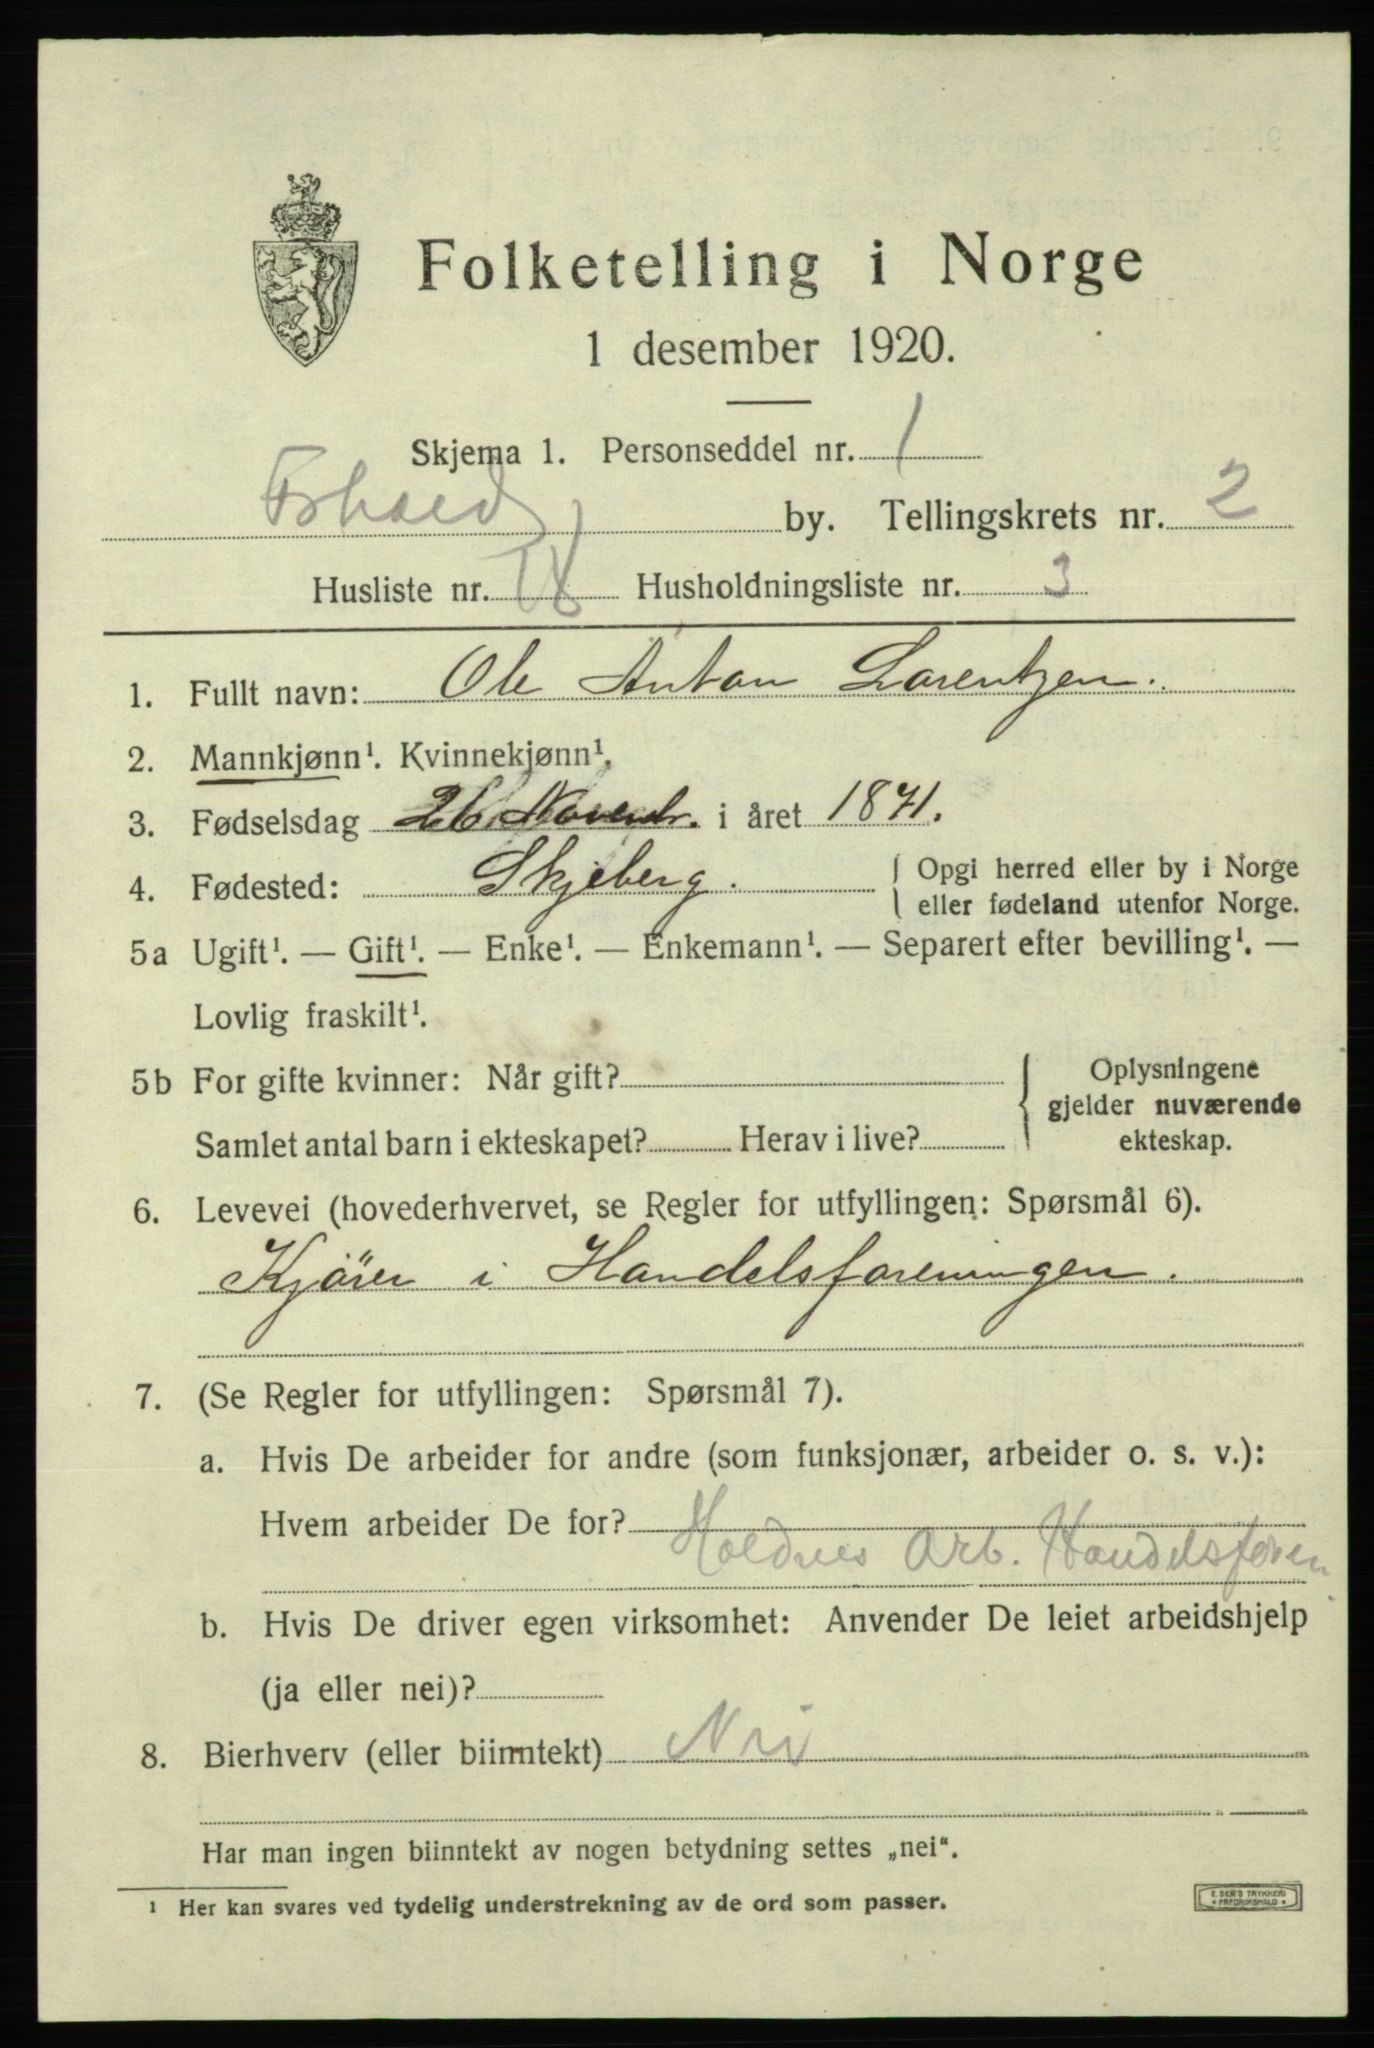 Folketelling i Norge
1 desember 1920.
Skjema 1. Personseddel nr. 1
Fr.hald by. Tellingskrets nr. 2
Husliste nr. 18 Husholdningsliste nr. 3
1. Fullt navn: Ole Anton Lorentzen.
2. Mannkjønn¹. Kvinnekjønn¹.
3. Fødselsdag 26. Novembr. i året 1871.
4. Fødested: Skjeberg. { Opgi herred eller by i Norge
eller fødeland utenfor Norge.
5a Ugift¹. — Gift¹. — Enke¹. — Enkemann¹. — Separert efter bevilling¹. —
Lovlig fraskilt¹.
5b For gifte kvinner: Når gift? { Oplysningene
gjelder nuværende
Samlet antal barn i ekteskapet? Herav i live? ekteskap.
6. Levevei (hovederhvervet, se Regler for utfyllingen: Spørsmål 6).
Kjörer i Handelsforeningen.
7. (Se Regler for utfyllingen: Spørsmål 7).
a. Hvis De arbeider for andre (som funksjonær, arbeider o. s. v.):
Hvem arbeider De for?
Arb. Handelsforen
b. Hvis De driver egen virksomhet: Anvender De leiet arbeidshjelp
(ja eller nei)?
8. Bierhverv (eller biinntekt) Nei
Har man ingen biinntekt av nogen betydning settes „nei“.
¹ Her kan svares ved tydelig understrekning av de ord som passer.
E. SEM'S TRYKKERI
• FREDRIKSHALD •